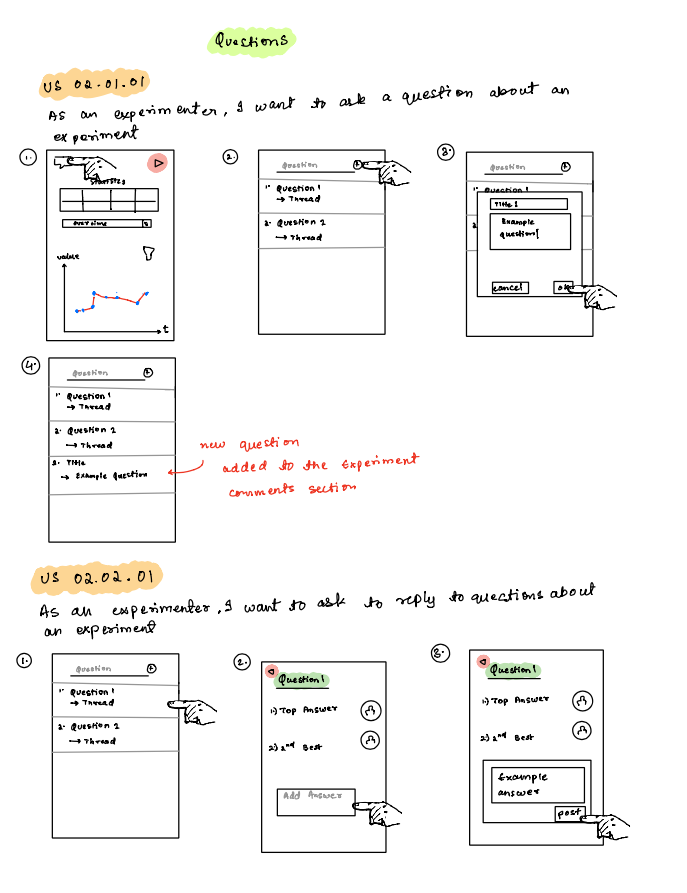 Questions
US 02.01.01
As an experimenter, I want to ask a question about an
experiment
1.
2.
3.
Statistics
over time
value
t
Question
+
1. Question 1
→ Thread
2. Question 2
→ Thread
Question
+
1. Question 1
2
Title 1
Example
question
cancel
ok
4.
Question
+
1. Question 1
→ Thread
2. Question 2
→ Thread
3. Title
→ Example Question
new question
added to the Experiment
comments section
US 02.02.01
As an experimenter, I want to ask to reply to questions about
an experiment
1.
2.
3.
Question
+
1. Question 1
→ Thread
2. Question 2
→ Thread
Question 1
1) Top Answer
2) 2nd Best
Add Answer
Question 1
1) Top Answer
2) 2nd Best
Example
answer
post